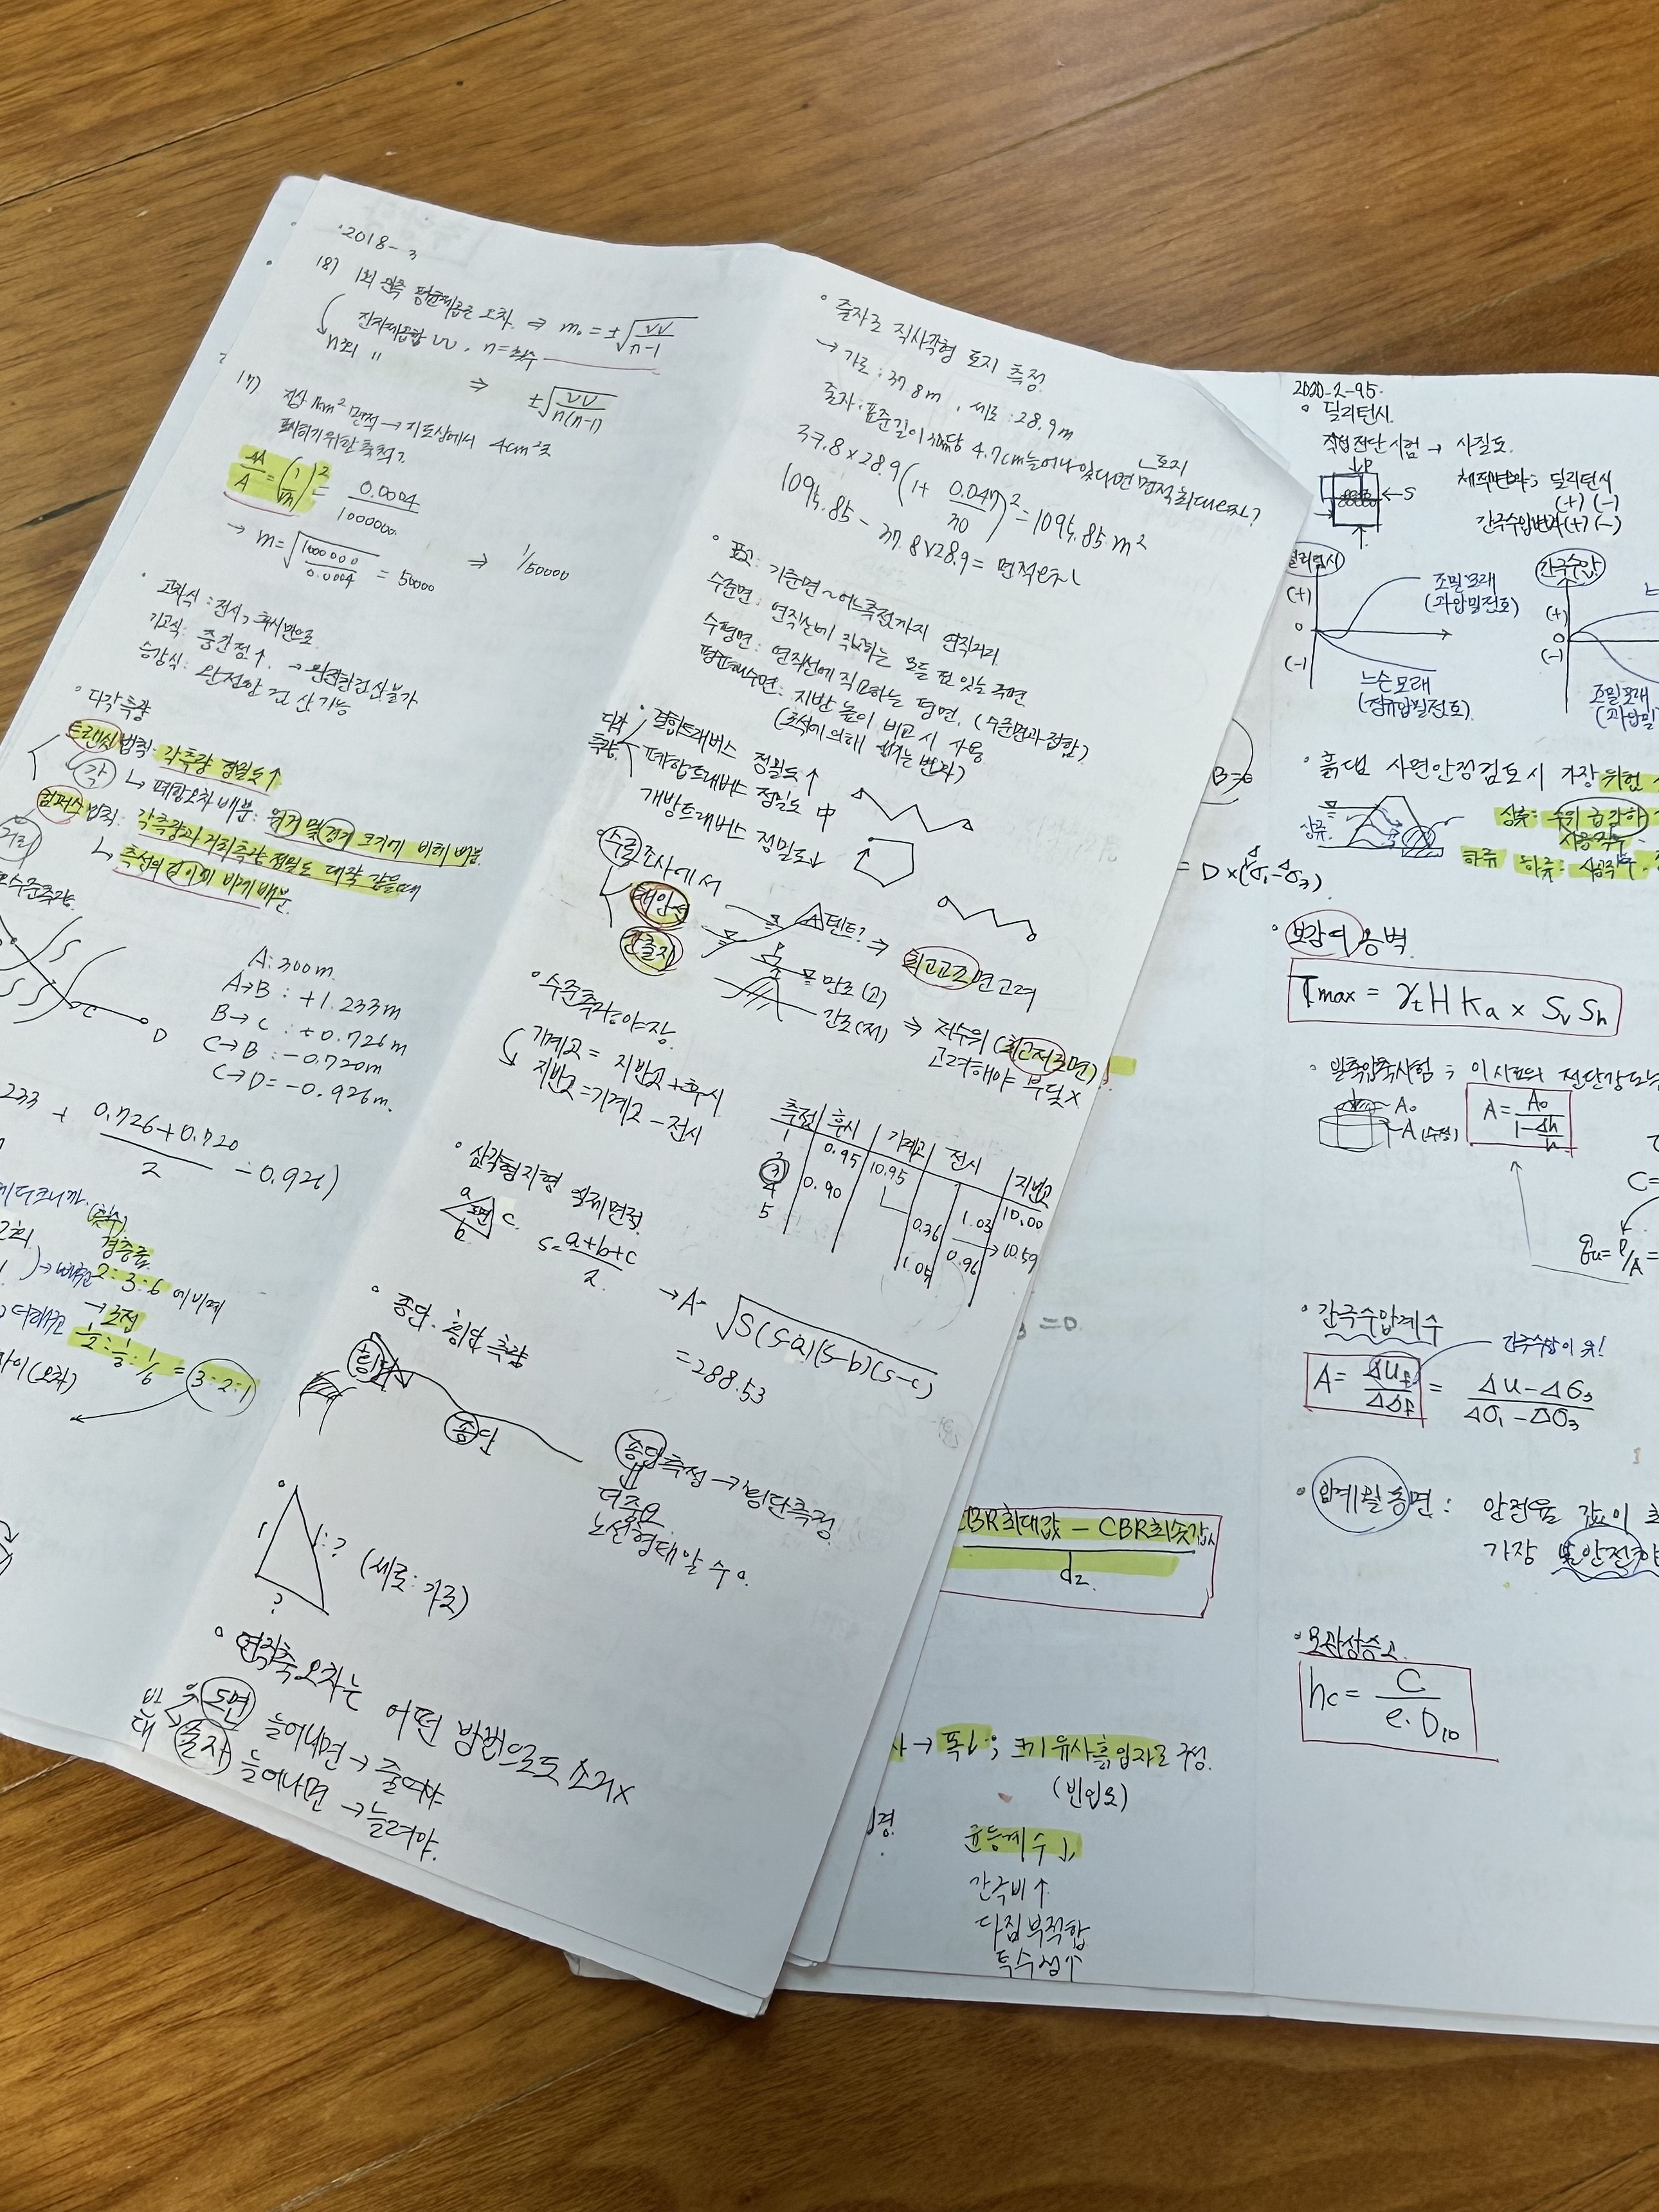 2018-3
18) 1회 관측 평균제곱근 오차. ⇒ m₀ = ±√(VV/n-1)
잔차제곱합 VV, n=횟수
n회 〃 ⇒ ±√(VV/n(n-1))
17) 지상 1km² 면적 → 지도상에서 4cm²로
표시하기 위한 축척?
(1/m)² = 0.0004/1000000
→ m = √(1000000/0.0004) = 50000 ⇒ 1/50000
고차식 : 전시, 후시만으로
기고식 : 중간점↑. → 완전한 검산불가
승강식 : 완전한 검산 가능
다각측량
트랜싯 법칙: 각측량 정밀도↑
각 ↳ 폐합오차배분: 위거 및 경거 크기에 비례 배분
컴퍼스 법칙: 각측량과 거리측량 정밀도 대략 같을때
거리 ↳ 측선의 길이에 비례 배분.
수준측량
C
D
A: 300m.
A→B : +1.233m
B→C : +0.726m
C→B : -0.720m
C→D = -0.926m.
233 + (0.726+0.720)/2 - 0.926)
(횟수)
경중률
2:3:6 에 비례
→ 3점
1/2 : 1/3 : 1/6 = 3:2:1
(오차)
줄자로 직사각형 토지 측정
→ 가로 : 37.8m, 세로 : 28.9m
줄자: 표준길이 30m당 4.7cm 늘어나 있다면 면적최대오차?
토지
37.8×28.9(1+0.047/30)² = 1095.85m²
1095.85 - 37.8×28.9 = 면적오차
표고: 기준면~어느측점까지 연직거리
수준면: 연직선에 직교하는 모든 점 잇는 곡면
수평면: 연직선에 직교하는 평면. (수준면과 접함)
평균해수면: 지반 높이 비교시 사용
다각
측량
결합트래버스 정밀도↑
폐합트래버스 정밀도 中
개방트래버스 정밀도↓
수로조사에서
해안선
간출지
텐트? ⇒ 최고고조면고려
만조(고)
간조(저) ⇒ 저수위 (최저저조면)
고려해야 부딪x
수준측량야장.
기계고 = 지반고+후시
지반고=기계고-전시
측점 후시 기계고 전시 지반고
1 0.95 10.95 10.00
2 0.36 1.03
3 0.90 0.96 → 10.59
4
5 1.05
삼각형지형 실제면적
a
도면 c
b
s=(a+b+c)/2
→A= √S(s-a)(s-b)(s-c)
=288.53
종단. 횡단 측량
횡단
종단
종단측정 → 횡단측정
더중요
노선형태알수o
1
1:? (세로:가로)
?
연직축오차는 어떤 방법으로도 소거x
반
대
도면 늘어나면→줄여야
줄자 늘어나면→늘려야.
2020-2-95.
딜리턴시
직접전단시험 → 사질토
P
←S
체적변화; 딜리턴시
(+) (-)
간극수압변화(+) (-)
딜리턴시
(+)
0
(-)
조밀모래
(과압밀점토)
느슨모래
(정규압밀점토)
간극수압
(+)
0
(-)
조밀모래
(과압밀
B=0
= D×(σ₁-σ₃)
흙댐 사면안정검토시 가장 위험
상류
상류: 수위 급강하
시공직후
하류 하류: 시공직후
보강띠 옹벽
Tmax = γt H Ka × Sv Sh
일축압축시험 ;
A₀
A
A = A₀/(1-Δh/h)
C=
qu = P/A =
간극수압계수
A = Δuf/Δσf = (Δu-Δσ₃)/(Δσ₁-Δσ₃)
간극수압이 위!
=0.
임계활동면: 안전율 값이
가장 불안전
CBR최대값 - CBR최솟값
d₂.
모관상승고
hc = C/(e·D₁₀)
크기 유사흙입자로 구성.
(빈입도)
균등계수↓
간극비↑
다짐부적합
투수성↑